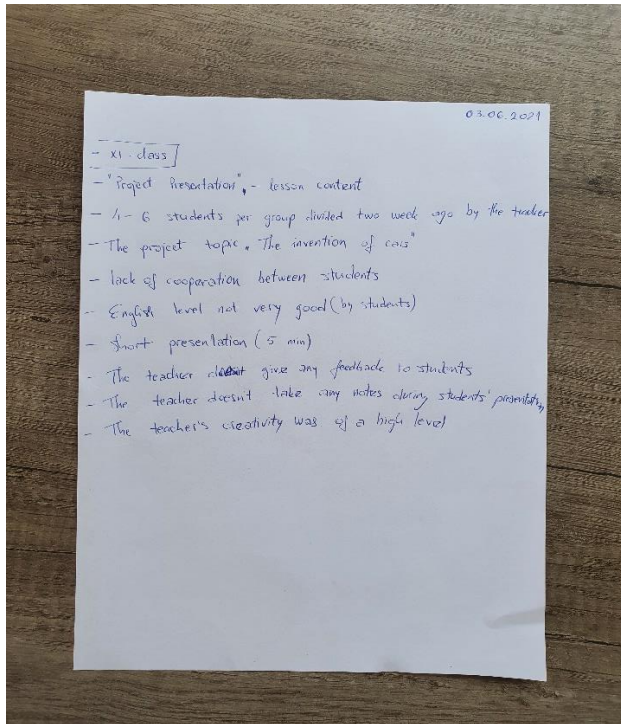 03.06.2021
- XI. class
- "Project Presentation", - lesson content
- 4-6 students per group divided two week ago by the teacher
- The project topic "The invention of cars"
- lack of cooperation between students
- English level not very good (by students)
- Short presentation (5 min)
- The teacher doesnt give any feedback to students
- The teacher doesn't take any notes during students' presentation
- The teacher's creativity was of a high level